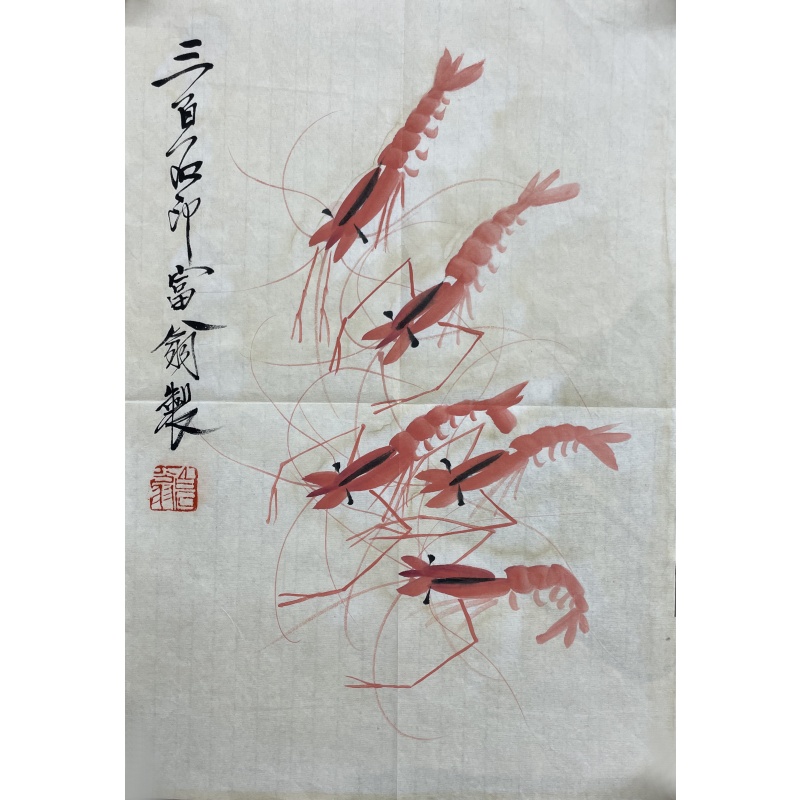 三百石印富翁製